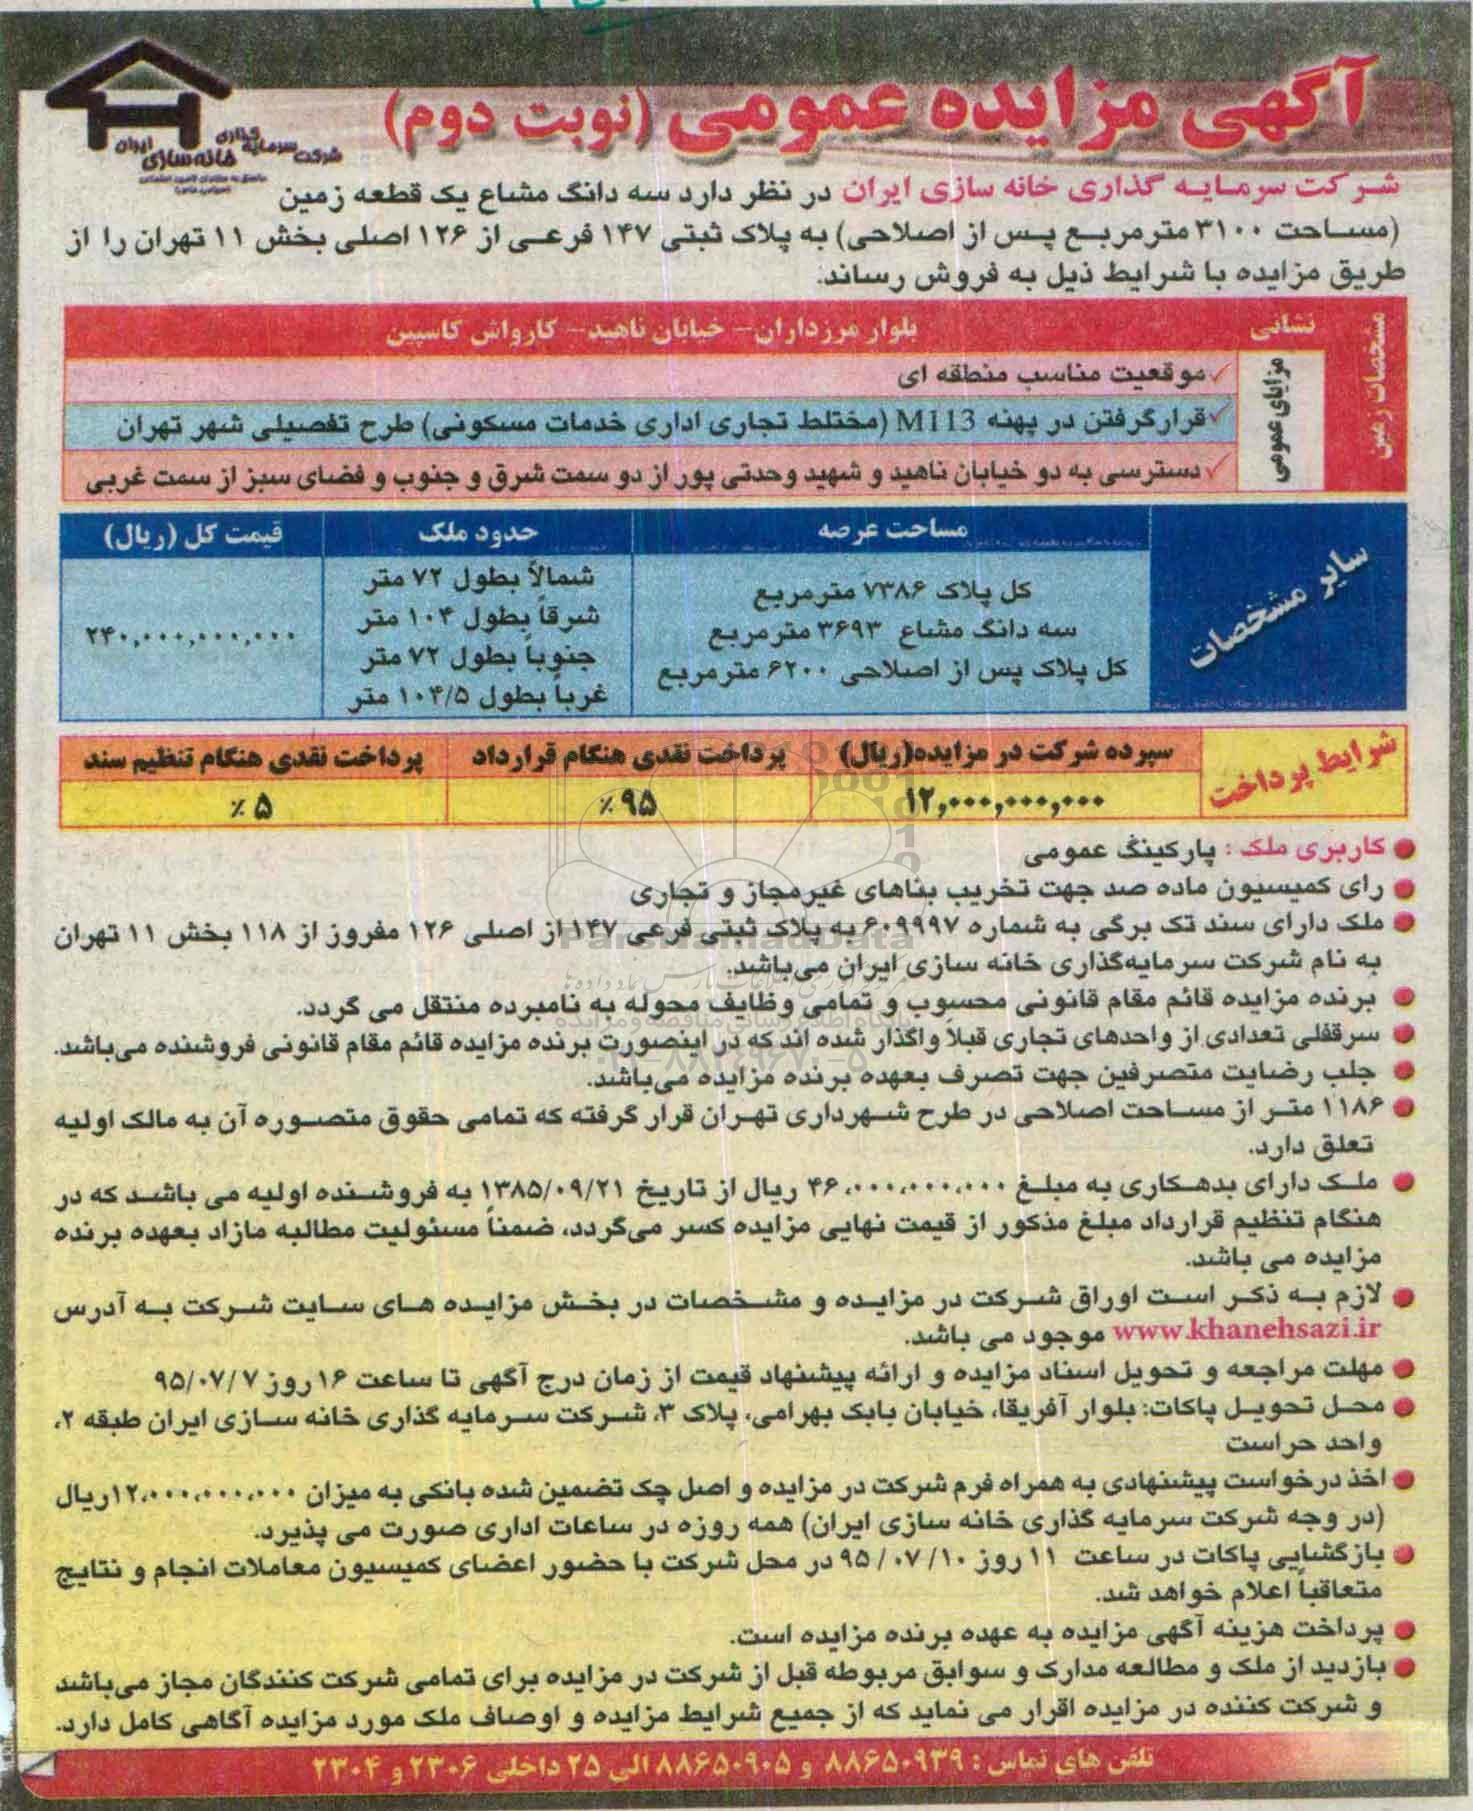 آگهی مزایده عمومی (نوبت دوم)
شرکت سرمایه گذاری
خانه سازی ایران
شرکت سرمایه گذاری خانه سازی ایران در نظر دارد سه دانگ مشاع یک قطعه زمین
(مساحت ۳۱۰۰ مترمربع پس از اصلاحی) به پلاک ثبتی ۱۴۷ فرعی از ۱۲۶ اصلی بخش ۱۱ تهران را از
طریق مزایده با شرایط ذیل به فروش رساند.
مشخصات زمین
نشانی
بلوار مرزداران- خیابان ناهید- کارواش کاسپین
مزایای عمومی
✓موقعیت مناسب منطقه ای
✓قرارگرفتن در پهنه M113 (مختلط تجاری اداری خدمات مسکونی) طرح تفصیلی شهر تهران
✓دسترسی به دو خیابان ناهید و شهید وحدتی پور از دو سمت شرق و جنوب و فضای سبز از سمت غربی
سایر مشخصات
مساحت عرصه
حدود ملک
قیمت کل (ریال)
کل پلاک ۷۳۸۶ مترمربع
سه دانگ مشاع ۳۶۹۳ مترمربع
کل پلاک پس از اصلاحی ۶۲۰۰ مترمربع
شمالاً بطول ۷۲ متر
شرقاً بطول ۱۰۴ متر
جنوباً بطول ۷۲ متر
غرباً بطول ۱۰۴/۵ متر
۲۴۰,۰۰۰,۰۰۰,۰۰۰
شرایط پرداخت
سپرده شرکت در مزایده(ریال)
پرداخت نقدی هنگام قرارداد
پرداخت نقدی هنگام تنظیم سند
۱۲,۰۰۰,۰۰۰,۰۰۰
۹۵ ٪
۵ ٪
● کاربری ملک : پارکینگ عمومی
● رای کمیسیون ماده صد جهت تخریب بناهای غیرمجاز و تجاری
● ملک دارای سند تک برگی به شماره ۶۰۹۹۹۷ به پلاک ثبتی فرعی ۱۴۷ از اصلی ۱۲۶ مفروز از ۱۱۸ بخش ۱۱ تهران
به نام شرکت سرمایه‌گذاری خانه سازی ایران می‌باشد.
● برنده مزایده قائم مقام قانونی محسوب و تمامی وظایف محوله به نامبرده منتقل می گردد.
● سرقفلی تعدادی از واحدهای تجاری قبلا واگذار شده اند که در اینصورت برنده مزایده قائم مقام قانونی فروشنده می‌باشد.
● جلب رضایت متصرفین جهت تصرف بعهده برنده مزایده می‌باشد.
● ۱۱۸۶ متر از مساحت اصلاحی در طرح شهرداری تهران قرار گرفته که تمامی حقوق متصوره آن به مالک اولیه
تعلق دارد.
● ملک دارای بدهکاری به مبلغ ۴۶,۰۰۰,۰۰۰,۰۰۰ ریال از تاریخ ۱۳۸۵/۰۹/۲۱ به فروشنده اولیه می باشد که در
هنگام تنظیم قرارداد مبلغ مذکور از قیمت نهایی مزایده کسر می‌گردد، ضمناً مسئولیت مطالبه مازاد بعهده برنده
مزایده می باشد.
● لازم به ذکر است اوراق شرکت در مزایده و مشخصات در بخش مزایده های سایت شرکت به آدرس
www.khanehsazi.ir موجود می باشد.
● مهلت مراجعه و تحویل اسناد مزایده و ارائه پیشنهاد قیمت از زمان درج آگهی تا ساعت ۱۶ روز ۹۵/۰۷/۷
● محل تحویل پاکات: بلوار آفریقا، خیابان بابک بهرامی، پلاک ۳، شرکت سرمایه گذاری خانه سازی ایران طبقه ۲،
واحد حراست
● اخذ درخواست پیشنهادی به همراه فرم شرکت در مزایده و اصل چک تضمین شده بانکی به میزان ۱۲,۰۰۰,۰۰۰,۰۰۰ریال
(در وجه شرکت سرمایه گذاری خانه سازی ایران) همه روزه در ساعات اداری صورت می پذیرد.
● بازگشایی پاکات در ساعت ۱۱ روز ۹۵/۰۷/۱۰ در محل شرکت با حضور اعضای کمیسیون معاملات انجام و نتایج
متعاقباً اعلام خواهد شد.
● پرداخت هزینه آگهی مزایده به عهده برنده مزایده است.
● بازدید از ملک و مطالعه مدارک و سوابق مربوطه قبل از شرکت در مزایده برای تمامی شرکت کنندگان مجاز می‌باشد
و شرکت کننده در مزایده اقرار می نماید که از جمیع شرایط مزایده و اوصاف ملک مورد مزایده آگاهی کامل دارد.
تلفن های تماس : ۸۸۶۵۰۹۳۹ و ۸۸۶۵۰۹۰۵ الی ۲۵ داخلی ۲۳۰۶ و ۲۳۰۴